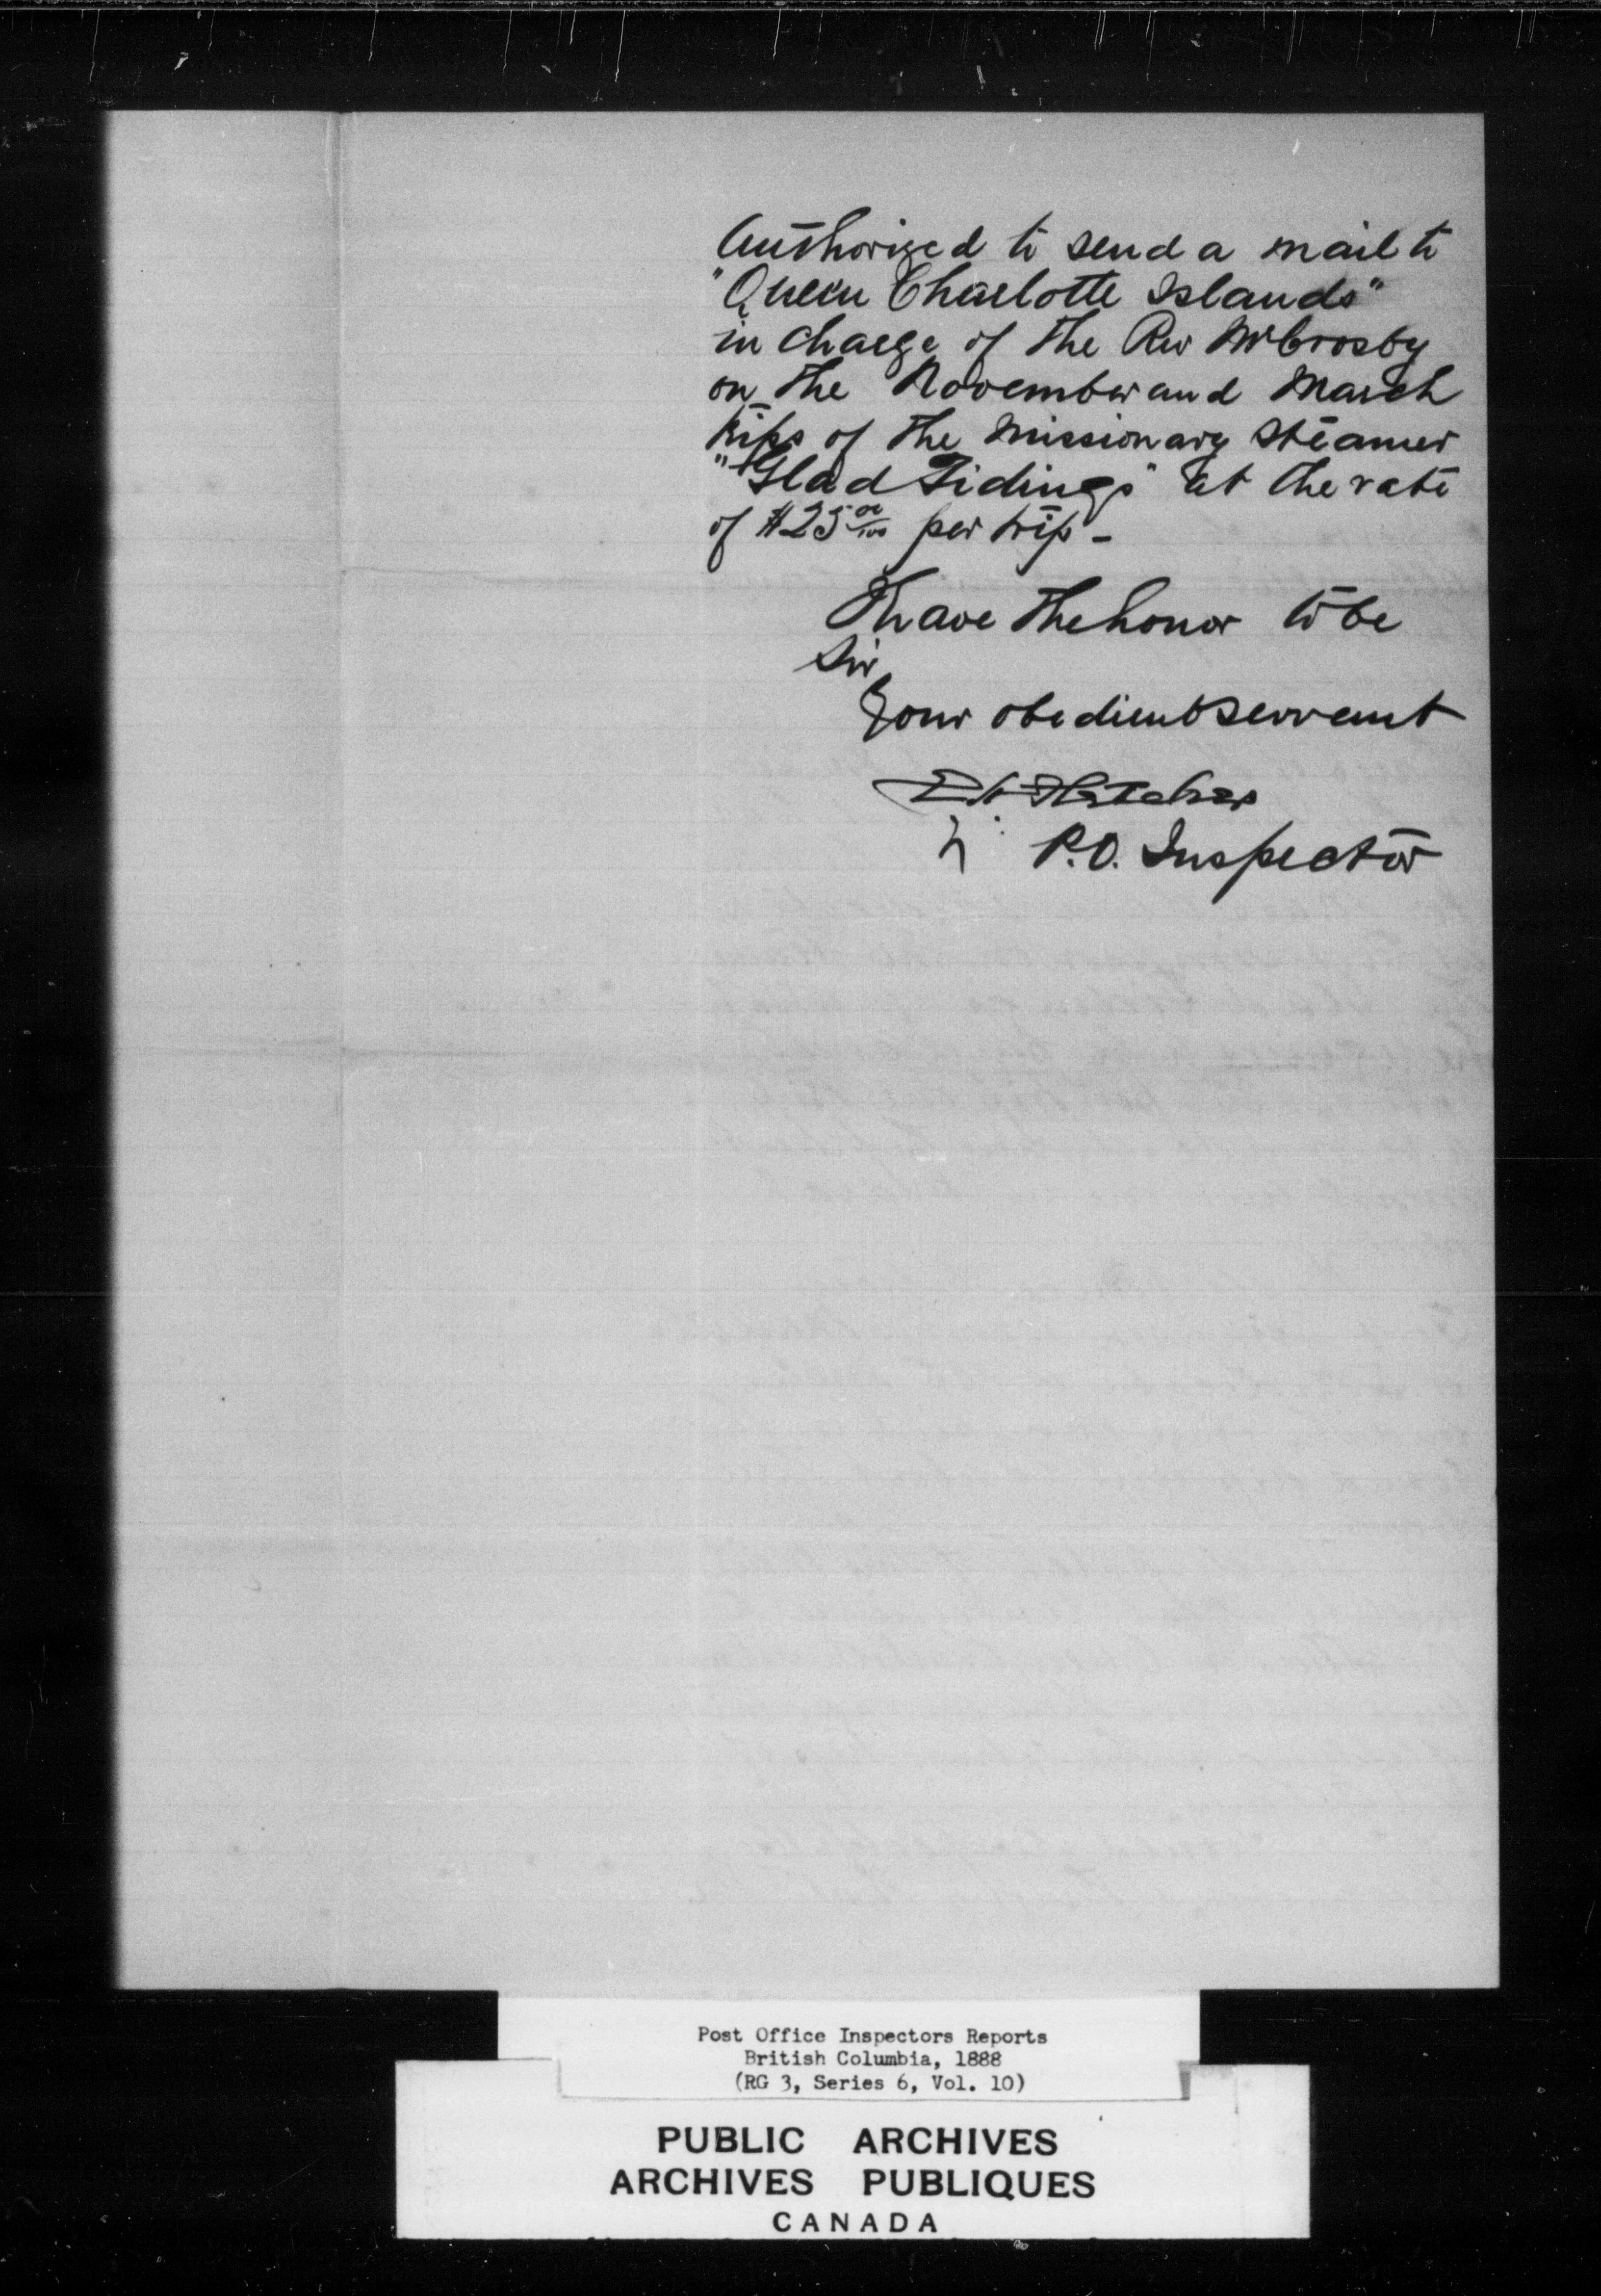 Authorized to send a mail to
"Queen Charlotte Islands"
in charge of the Rev Mr Crosby
on the November and March
trips of the Missionary Steamer
"Glad Tidings" at the rate
of $25 00/100 per trip -
I have the honor to be
Sir
Your obedient servant
Fletcher
P.O. Inspector
Post Office Inspectors Reports
British Columbia, 1888
(RG 3, Series 6, Vol. 10)
PUBLIC ARCHIVES
ARCHIVES PUBLIQUES
CANADA